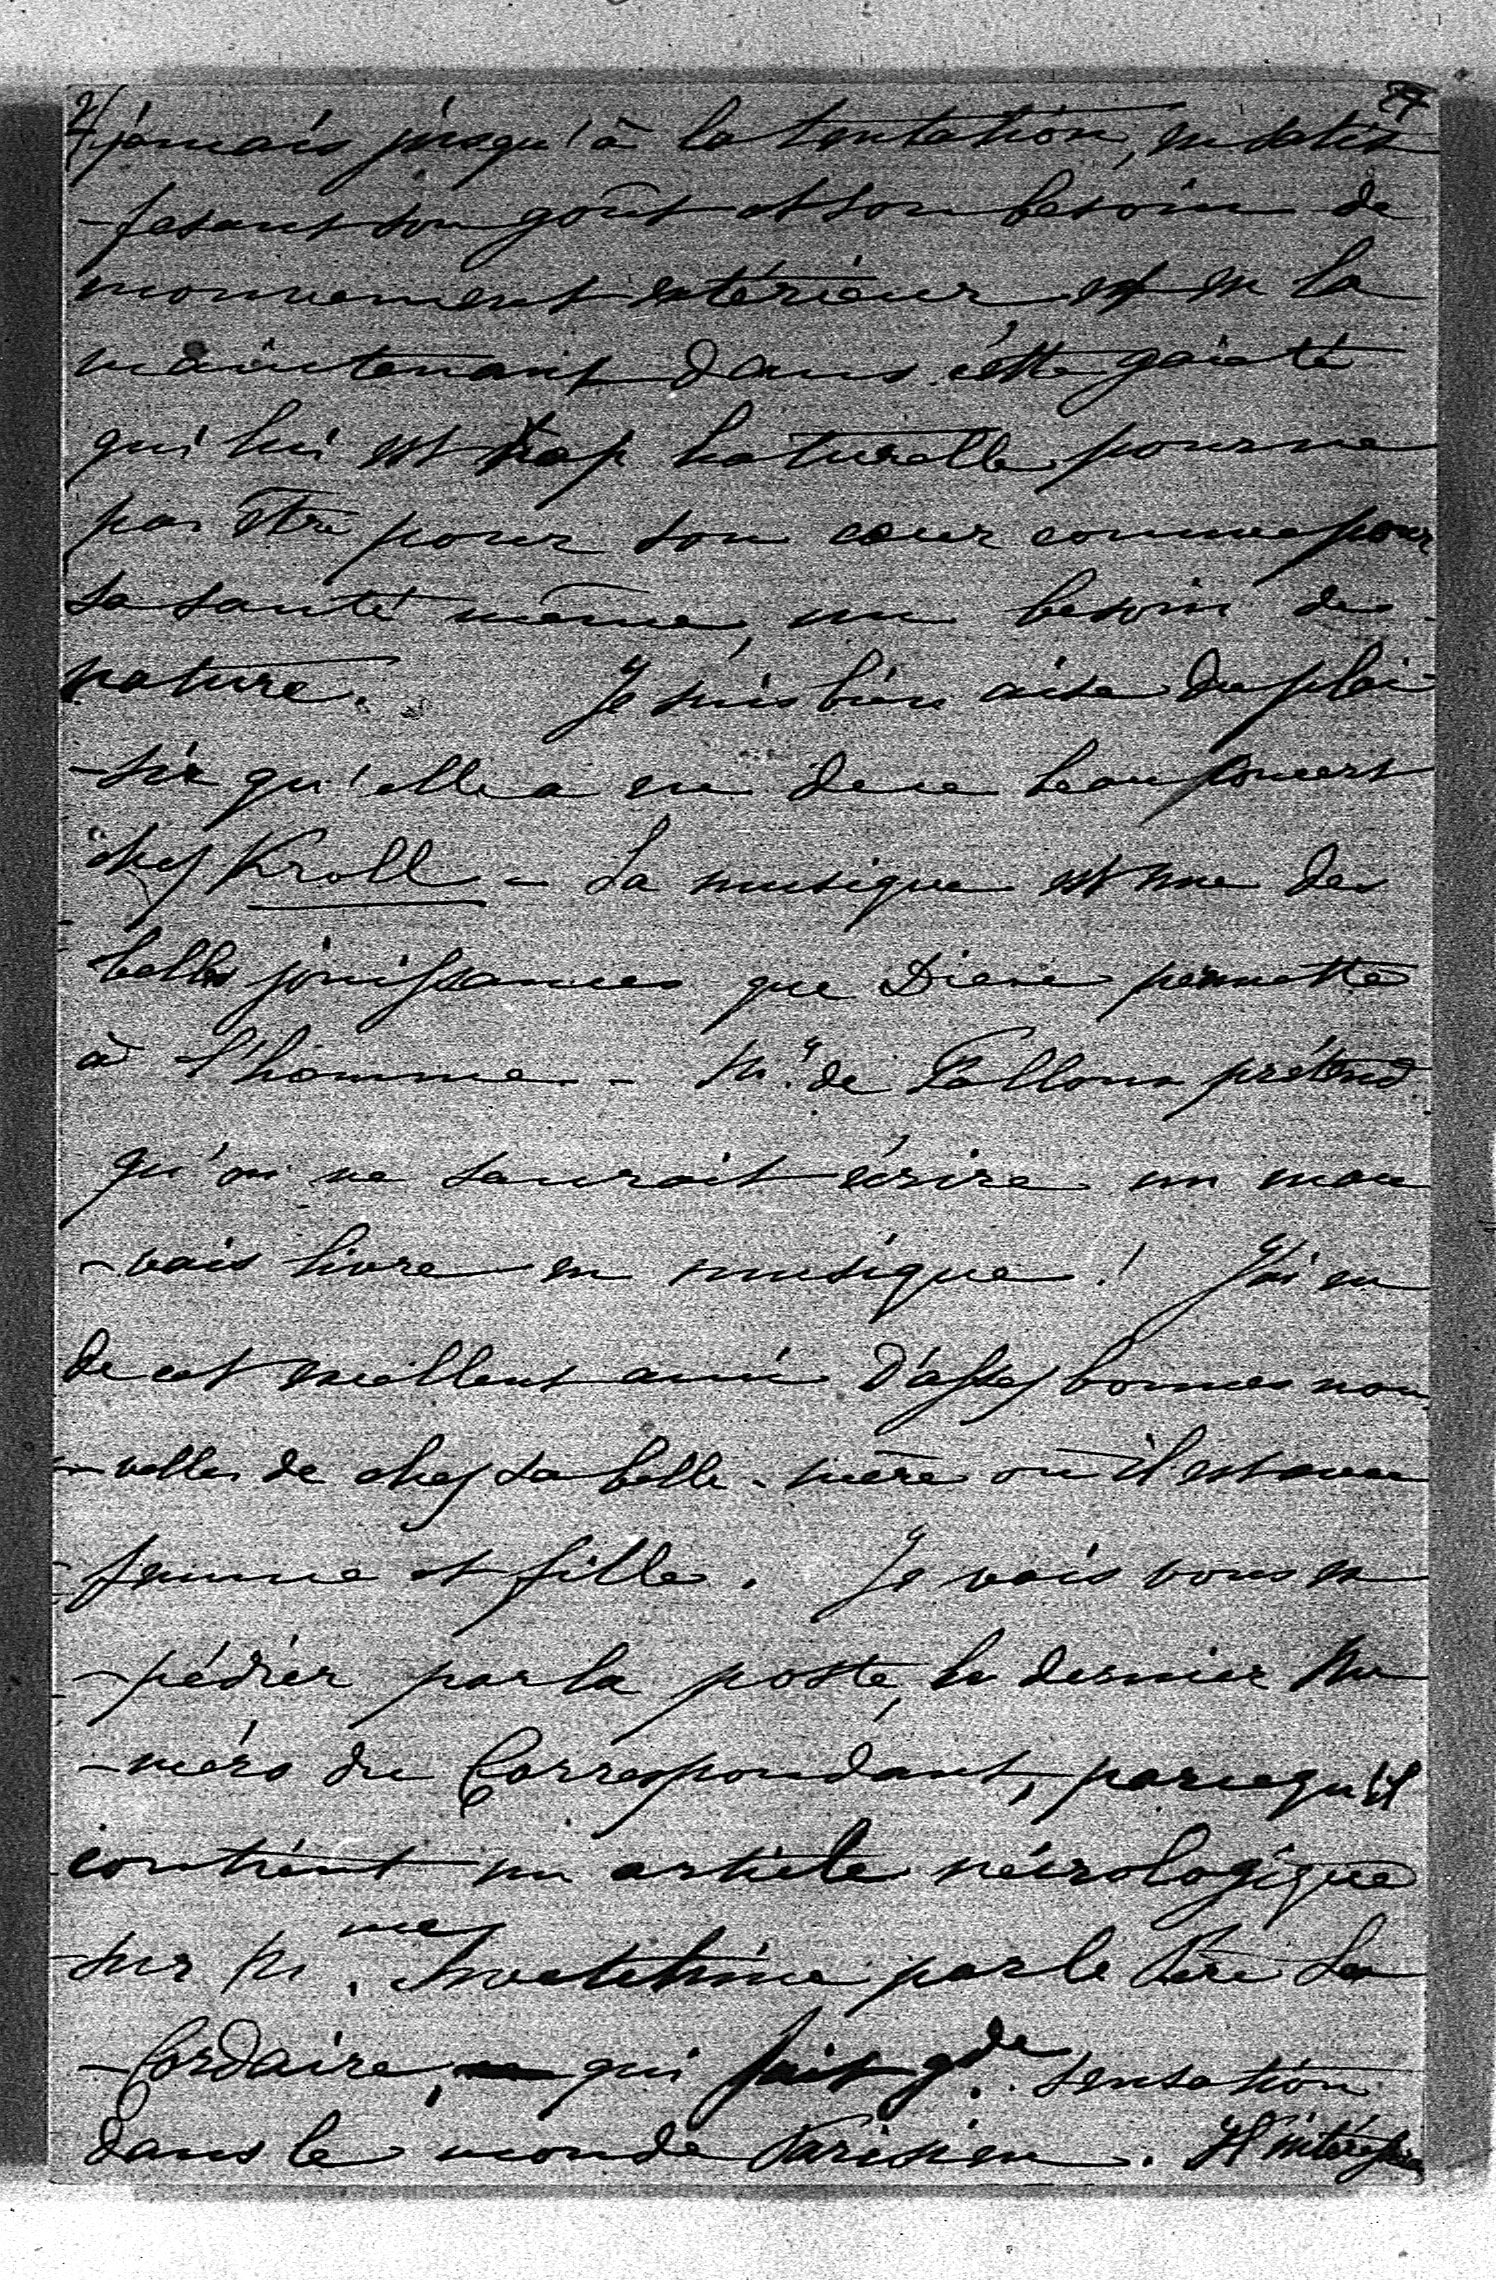 2/ jamais jusqu'à la tentation, en satis
-fesant son goût et son besoin de
mouvement extérieur et en la
maintenant dans cette gaieté
qui lui est trop naturelle pour ne
pas être pour son cœur comme pour
sa santé même, un besoin de
nature. Je suis bien aise du plai
-sir qu'elle a eu de ce beau concert
chez Kroll - La musique est une des
belles jouissances que Dieu permette
à l'homme. - Mr. de Falloux prétend
qu'on ne saurait écrire un mau
-vais livre en musique ! J'ai eu
de cet excellent ami d'assez bonnes nou
-velles de chez sa belle-mère où il est avec
femme et fille. Je vais vous ex
-pédier par la poste, le dernier Nu
-méro du Correspondant, parcequ'il
contient un article nécrologique
sur Me. Swetchine par le Père La
-Cordaire, qui fait gde. sensation
dans le monde Parisien. Il intéresse